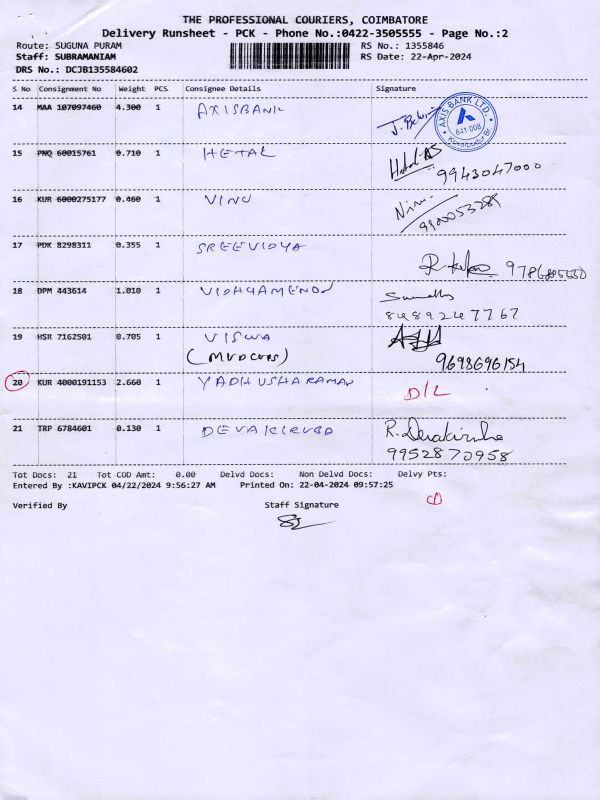 THE PROFESSIONAL COURIERS, COIMBATORE
Delivery Runsheet - PCK - Phone No.:0422-3505555 - Page No.:2
Route: SUGUNA PURAM RS No.: 1355846
Staff: SUBRAMANIAM RS Date: 22-Apr-2024
DRS No.: DCJB135584602
S No Consignment No Weight PCS Consignee Details Signature
14 MAA 107097460 4.300 1 AXISBANK
AXIS BANK LTD.
641 008
15 PNQ 60015761 0.710 1 HETAL
9943047000
16 KUR 6000275177 0.460 1 VINU
17 PDK 8298311 0.355 1 SREEVIDYA
18 DPM 443614 1.010 1 VIDHYAMENON
8489247767
19 HSR 7162501 0.705 1 VISWA
9698696154
20 KUR 4000191153 2.660 1 YADHUSHARAMAN D/L
21 TRP 6784601 0.130 1 DEVAKIRUBA
9952870958
Tot Docs: 21 Tot COD Amt: 0.00 Delvd Docs: Non Delvd Docs: Delvy Pts:
Entered By :KAVIPCK 04/22/2024 9:56:27 AM Printed On: 22-04-2024 09:57:25
Verified By Staff Signature